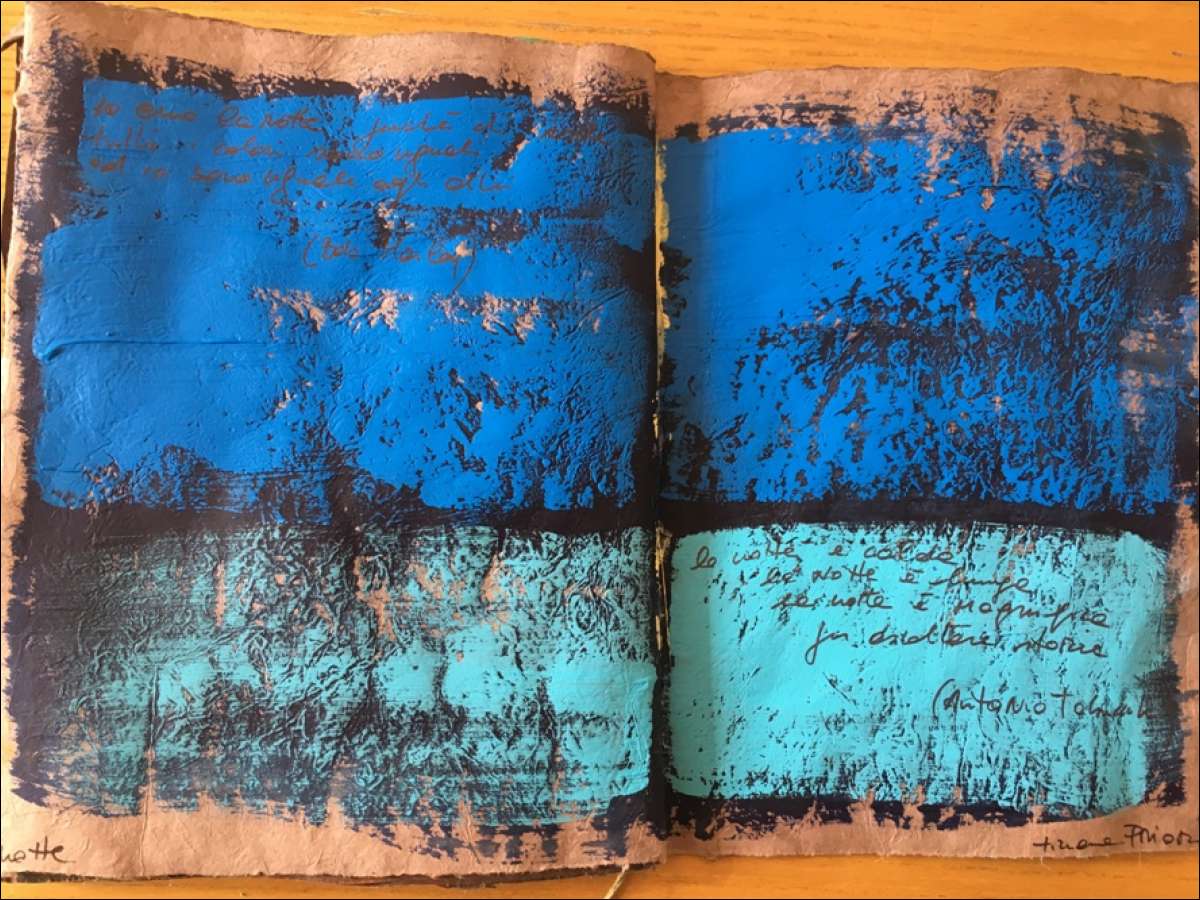 Io amo la notte perché di notte
tutti i colori sono uguali
ed io sono uguale agli altri
(Bob Marley)
la notte è calda
la notte è lunga
la notte è magnifica
per ascoltare storie
(Antonio Tabucchi
notte